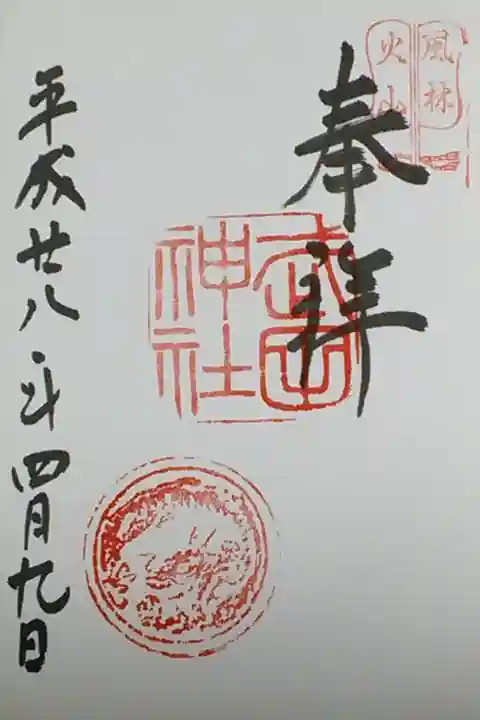 風林
火山
奉拝
武田
神社
平成廿八年四月九日